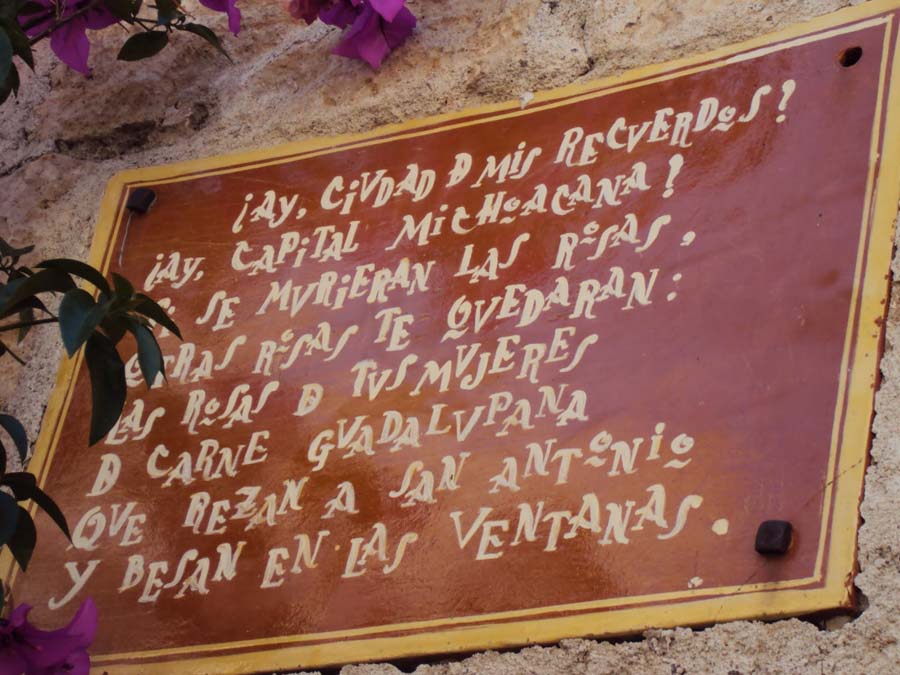 ¡AY, CIVDAD D MIS RECUERDOS!
¡AY, CAPITAL MICHOACANA!
SE MVRIERAN LAS ROSAS,
OTRAS ROSAS TE QVEDARAN:
LAS ROSAS D TVS MVJERES
D CARNE GVADALVPANA
QVE REZAN A SAN ANTONIO
Y BESAN EN LAS VENTANAS.